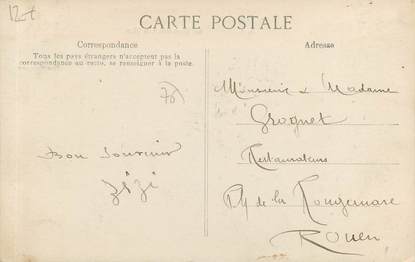 12+
CARTE POSTALE
Correspondance
Tous les pays étrangers n'acceptent pas la
correspondance au recto, se renseigner à la poste.
Adresse
Monsieur & Madame
Grognet
Restaurateurs
Pl de la Rougemare
Rouen
Bon Souvenir
Zizi